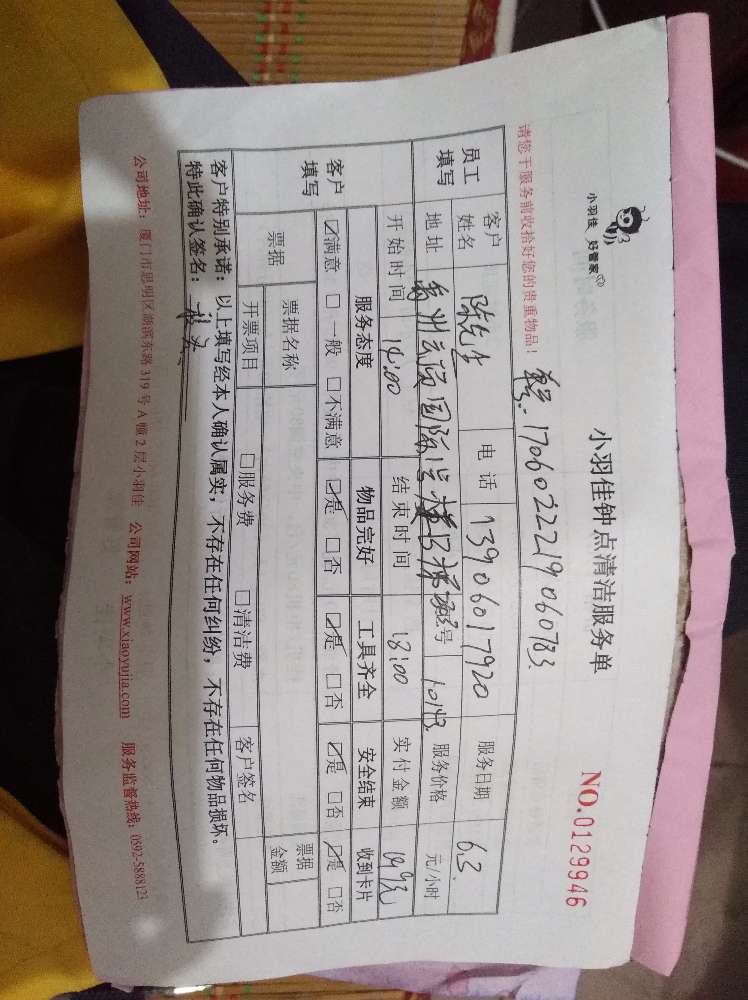 小羽佳 好管家
小羽佳钟点清洁服务单
NO.0129946
请您于服务前收拾好您的贵重物品！
单号：1706022219060783
员工填写
客户姓名 陈先生 电话 13906017920 服务日期 6.3
地址 国际 号 服务价格 元/小时
开始时间 14:00 结束时间 18:00 实付金额
客户填写
服务态度 物品完好 工具齐全 安全结束 收到卡片
☑满意 □一般 □不满意 ☑是 □否 ☑是 □否 ☑是 □否 ☑是 □否
票据 票据名称 票据金额
开票项目 □服务费 □清洁费 客户签名
客户特别承诺：以上填写经本人确认属实，不存在任何纠纷，不存在任何物品损坏。
特此确认签名：
公司地址：厦门市思明区湖滨东路 319 号 A 幢 2 层小羽佳 公司网站：www.xiaoyujia.com 服务监督热线：0592-5888123